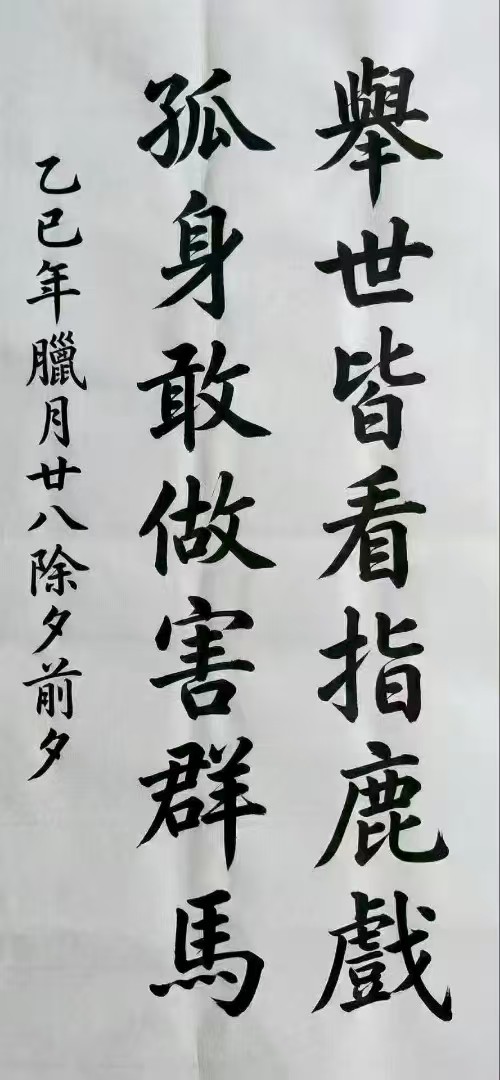 舉世皆看指鹿戲
孤身敢做害群馬
乙巳年臘月廿八除夕前夕